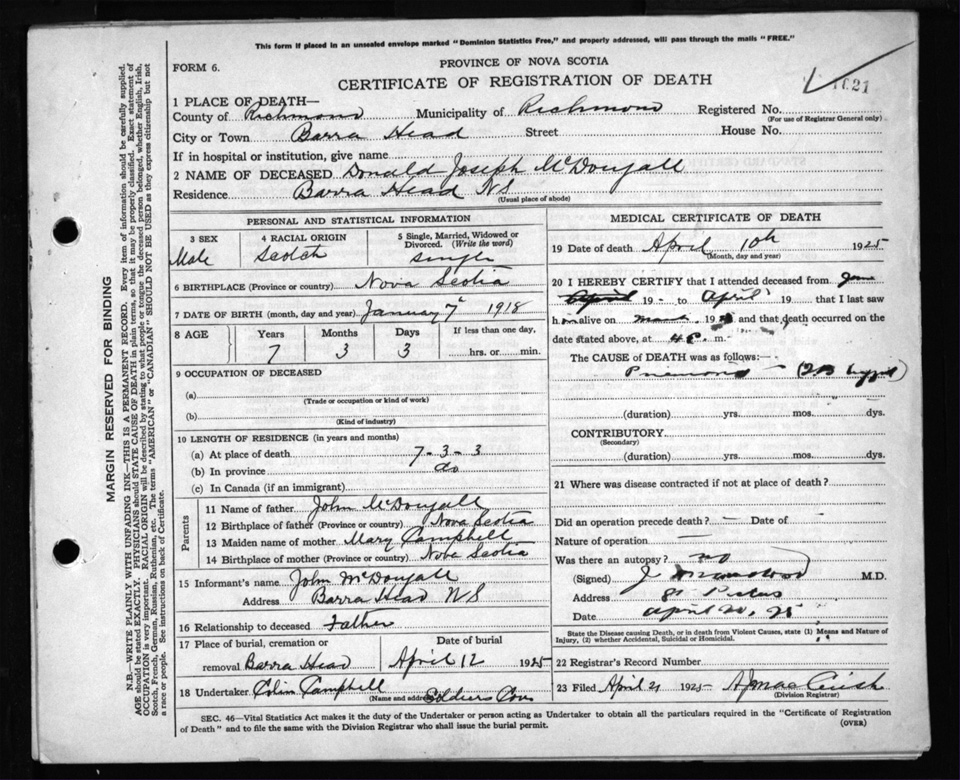 This form if placed in an unsealed envelope marked "Dominion Statistics Free," and properly addressed, will pass through the mails "FREE."
FORM 6.
PROVINCE OF NOVA SCOTIA
CERTIFICATE OF REGISTRATION OF DEATH
1621
1 PLACE OF DEATH—
County of Richmond Municipality of Richmond Registered No.
(For use of Registrar General only)
City or Town Barra Head Street House No.
If in hospital or institution, give name
2 NAME OF DECEASED Donald Joseph McDougall
Residence Barra Head NS
(Usual place of abode)
PERSONAL AND STATISTICAL INFORMATION
3 SEX 4 RACIAL ORIGIN 5 Single, Married, Widowed or Divorced. (Write the word)
Male Scotch Single
6 BIRTHPLACE (Province or country) Nova Scotia
7 DATE OF BIRTH (month, day and year) January 7 1918
8 AGE Years Months Days If less than one day,
7 3 3 hrs. or min.
9 OCCUPATION OF DECEASED
(a)
(Trade or occupation or kind of work)
(b)
(Kind of industry)
10 LENGTH OF RESIDENCE (in years and months)
(a) At place of death 7-3-3
(b) In province do
(c) In Canada (if an immigrant)
Parents
11 Name of father John McDougall
12 Birthplace of father (Province or country) Nova Scotia
13 Maiden name of mother Mary Campbell
14 Birthplace of mother (Province or country) Nova Scotia
15 Informant's name John McDougall
Address Barra Head NS
16 Relationship to deceased Father
17 Place of burial, cremation or removal Barra Head Date of burial April 12 1925
18 Undertaker Colin Campbell
(Name and address) Soldiers Cove
MEDICAL CERTIFICATE OF DEATH
19 Date of death April 10th 1925
(Month, day and year)
20 I HEREBY CERTIFY that I attended deceased from
19 - to April 19 that I last saw
h m alive on March 19 and that death occurred on
date stated above, at m.
The CAUSE of DEATH was as follows:—
Pneumonia
(duration) yrs. mos. dys.
CONTRIBUTORY
(Secondary)
(duration) yrs. mos. dys.
21 Where was disease contracted if not at place of death?
Did an operation precede death? — Date of —
Nature of operation —
Was there an autopsy? no
(Signed) J M.D.
Address St Peters
Date April 20, 25
State the Disease causing Death, or in death from Violent Causes, state (1) Means and Nature of Injury, (2) whether Accidental, Suicidal or Homicidal.
22 Registrar's Record Number
23 Filed April 21 1925
(Division Registrar)
SEC. 46—Vital Statistics Act makes it the duty of the Undertaker or person acting as Undertaker to obtain all the particulars required in the "Certificate of Registration
of Death" and to file the same with the Division Registrar who shall issue the burial permit.
(OVER)
MARGIN RESERVED FOR BINDING
N.B.—WRITE PLAINLY WITH UNFADING INK—THIS IS A PERMANENT RECORD. Every item of information should be carefully supplied.
AGE should be stated EXACTLY. PHYSICIANS should STATE CAUSE OF DEATH in plain terms, so that it may be properly classified. Exact statement of
OCCUPATION is very important. RACIAL ORIGIN will be described by stating to what people or tongue the deceased person belonged, whether English, Irish,
Scotch, French, German, Russian, Ruthenian, etc. The terms "AMERICAN" or "CANADIAN" SHOULD NOT BE USED as they express citizenship but not
a race or people. See instructions on back of Certificate.